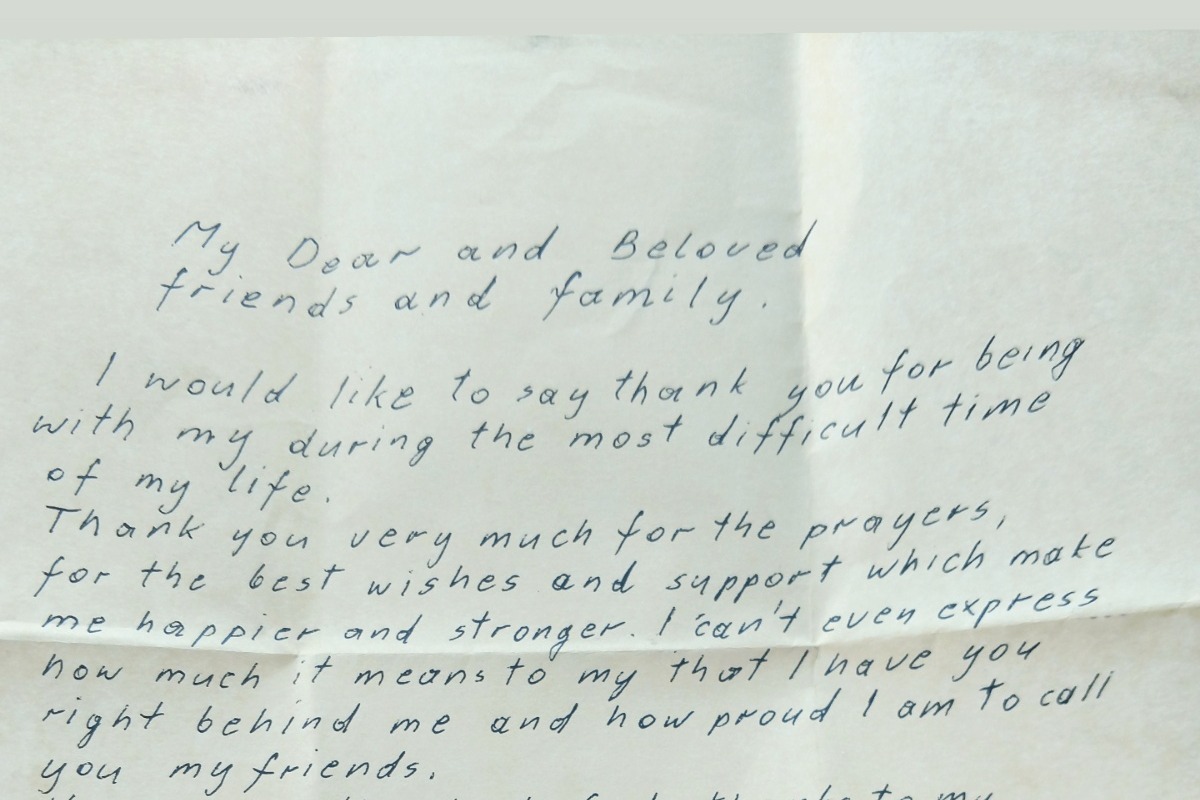 My Dear and Beloved
friends and family.
I would like to say thank you for being
with my during the most difficult time
of my life.
Thank you very much for the prayers,
for the best wishes and support which make
me happier and stronger. I can't even express
how much it means to my that I have you
right behind me and how proud I am to call
you my friends.
to my